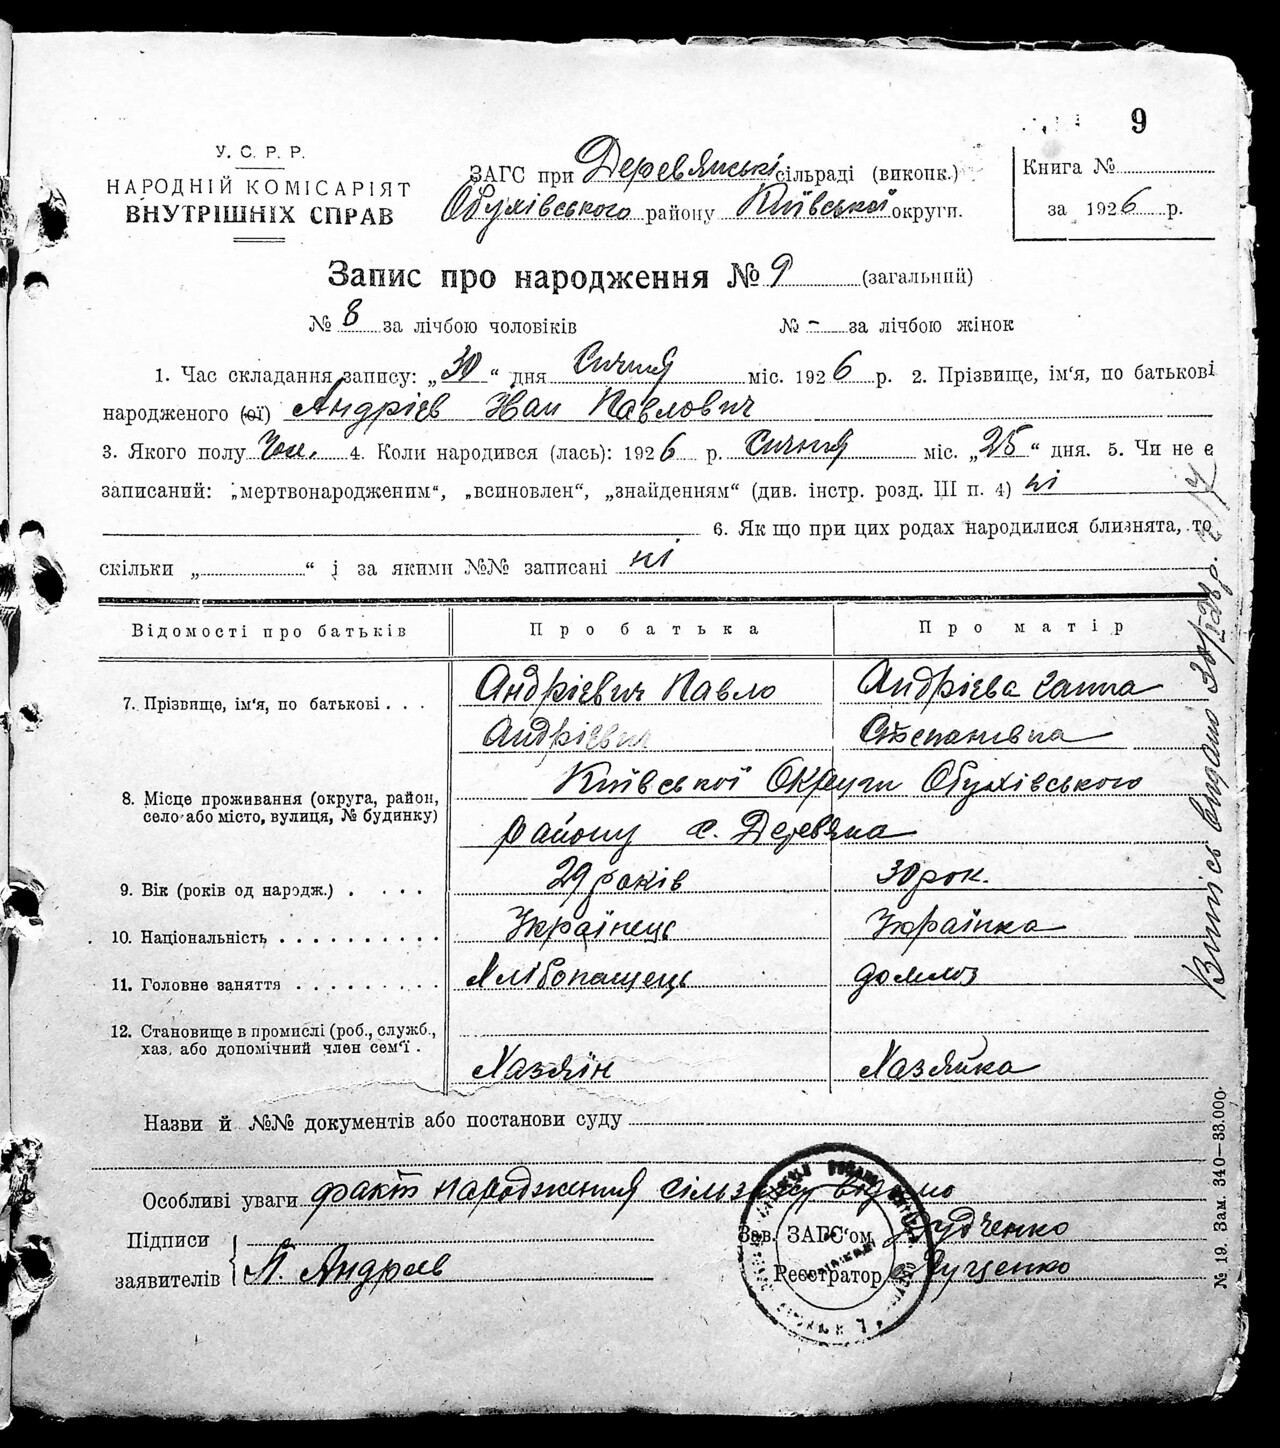 9
У. С. Р. Р.
НАРОДНІЙ КОМІСАРІЯТ
ВНУТРІШНІХ СПРАВ
ЗАГС при Деревянські сільраді (виконк.)
Обухівського району Київської округи.
Книга №
за 1926 р.
Запис про народження № 9 (загальний)
№ 8 за лічбою чоловіків № - за лічбою жінок
1. Час складання запису: „30“ дня Січня міс. 1926 р. 2. Прізвище, ім'я, по батькові
народженого (ої) Андрієв Іван Павлович
3. Якого полу Чол. 4. Коли народився (лась): 1926 р. Січня міс. „25“ дня. 5. Чи не є
записаний: „мертвонародженим“, „всиновлен“, „знайденням“ (див. інстр. розд. III п. 4) ні
6. Як що при цих родах народилися близнята, то
скільки „ “ і за якими №№ записані ні
Відомості про батьків Про батька Про матір
7. Прізвище, ім'я, по батькові . . . Андрієвич Павло Андрієва Ганна
Андрієвич Степановна
8. Місце проживання (округа, район, село або місто, вулиця, № будинку) Київської Округи Обухівського
району с. Деревяна
9. Вік (років од народж.) . . . . 29 років 30 рок.
10. Національність . . . . . . . . . . Українець Українка
11. Головне заняття . . . . . . . . . Хлібопашець домхоз
12. Становище в промислі (роб., служб.,
хаз. або допомічний член сем'ї .
Хазяїн Хазяйка
Назви й №№ документів або постанови суду
Особливі уваги факт народження сільраді відомо
Підписи
заявителів П. Андрієв
Зав. ЗАГС'ом Дудченко
Реєстратор Луценко
Випись видано
№ 19. Зам. 340—33.000